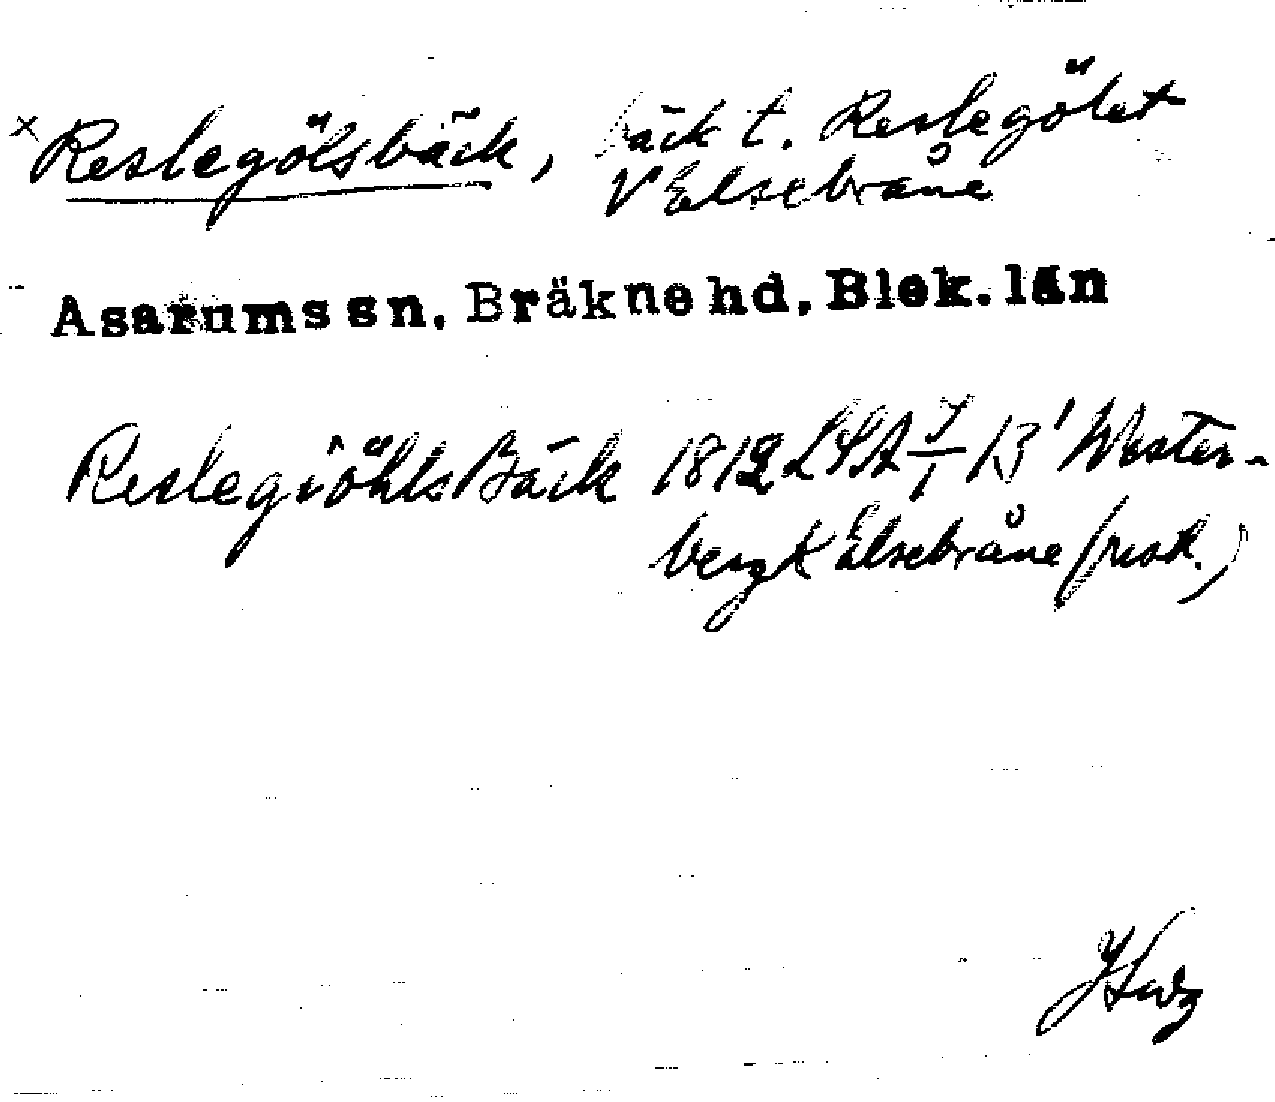 × Reslegölsbäck, bäck t. Reslegölet
V Elsebråne
Asarums sn, Bräkne hd, Blek. län
Reslegiöhls Bäck 1812 LSA 7/1 13' Wester-
berg K Elsebråne (resk.)